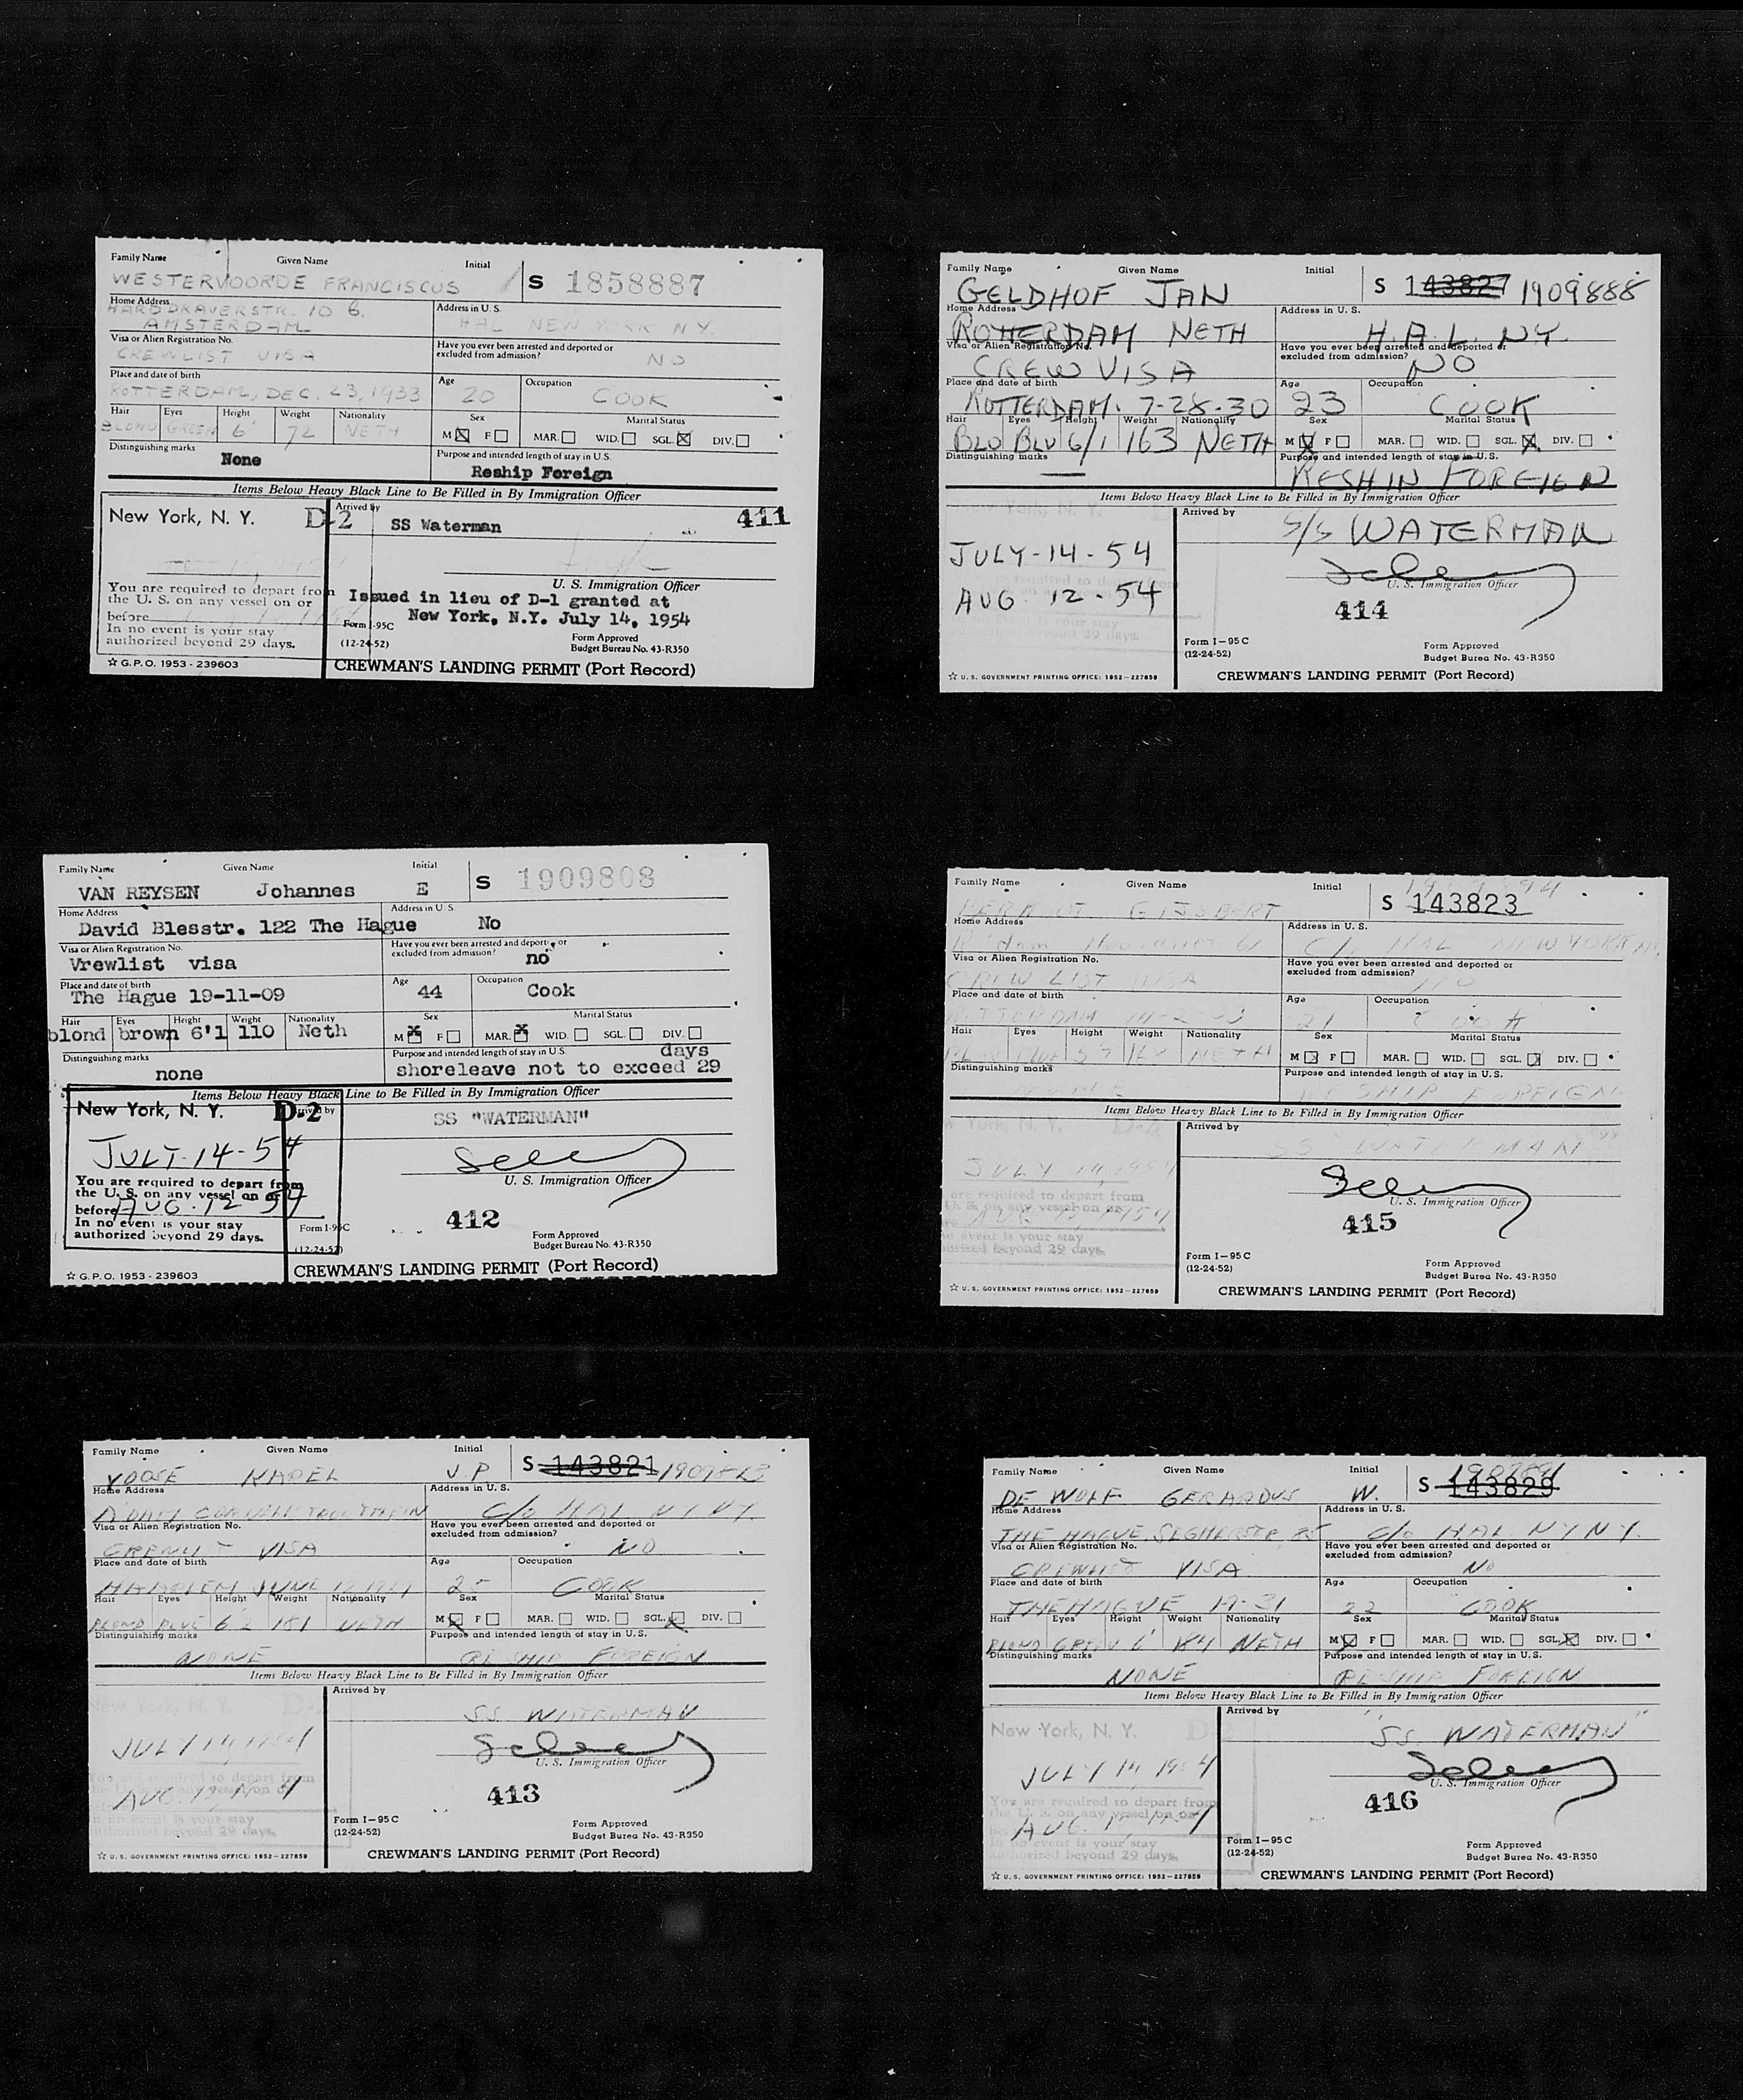 Family Name Given Name Initial
WESTERVOORDE FRANCISCUS S 1858887
Home Address Address in U. S.
HARDDRAVERSTR. 10 6.
AMSTERDAM HAL NEW YORK NY
Visa or Alien Registration No. Have you ever been arrested and deported or excluded from admission?
CREWLIST VISA NO
Place and date of birth Age Occupation
ROTTERDAM, DEC. 23, 1933 20 COOK
Hair Eyes Height Weight Nationality Sex Marital Status
BLOND GREEN 6' 72 NETH M F MAR. WID. SGL. DIV.
Distinguishing marks Purpose and intended length of stay in U.S.
None Reship Foreign
Items Below Heavy Black Line to Be Filled in By Immigration Officer
New York, N. Y. D-2 Arrived by SS Waterman 411
U. S. Immigration Officer
You are required to depart from
the U. S. on any vessel on or
before
In no event is your stay
authorized beyond 29 days.
Issued in lieu of D-1 granted at
New York, N.Y. July 14, 1954
Form I-95C
(12-24-52)
Form Approved
Budget Bureau No. 43-R350
☆ G.P.O. 1953 - 239603 CREWMAN'S LANDING PERMIT (Port Record)
Family Name Given Name Initial
VAN REYSEN Johannes E S 1909808
Home Address Address in U. S.
David Blesstr. 122 The Hague No
Visa or Alien Registration No. Have you ever been arrested and deported or excluded from admission?
Vrewlist visa no
Place and date of birth Age Occupation
The Hague 19-11-09 44 Cook
Hair Eyes Height Weight Nationality Sex Marital Status
blond brown 6'1 110 Neth M F MAR. WID. SGL. DIV.
Distinguishing marks Purpose and intended length of stay in U.S.
none shoreleave not to exceed 29 days
Items Below Heavy Black Line to Be Filled in By Immigration Officer
New York, N. Y. D-2 Arrived by SS "WATERMAN"
JULY-14-54
U. S. Immigration Officer
You are required to depart from
the U. S. on any vessel on or
before AUG. 12 54
In no event is your stay
authorized beyond 29 days.
412
Form I-95C
(12-24-52)
Form Approved
Budget Bureau No. 43-R350
☆ G.P.O. 1953 - 239603 CREWMAN'S LANDING PERMIT (Port Record)
Family Name Given Name Initial
KAREL J.P S 143821
Home Address Address in U. S.
C/o HAL NY NY.
Visa or Alien Registration No. Have you ever been arrested and deported or excluded from admission?
VISA NO
Place and date of birth Age Occupation
HAARLEM JUNE 25 COOK
Hair Eyes Height Weight Nationality Sex Marital Status
BLOND BLUE 6'2 181 NETH M F MAR. WID. SGL. DIV.
Distinguishing marks Purpose and intended length of stay in U.S.
NONE RESHIP FOREIGN
Items Below Heavy Black Line to Be Filled in By Immigration Officer
New York, N. Y. Arrived by
SS. WATERMAN
JULY 14 1954
U. S. Immigration Officer
413
Form I-95C
(12-24-52)
Form Approved
Budget Burea No. 43-R350
☆ U. S. GOVERNMENT PRINTING OFFICE: 1952-227859 CREWMAN'S LANDING PERMIT (Port Record)
Family Name Given Name Initial
GELDHOF JAN S 143827 1909888
Home Address Address in U. S.
ROTTERDAM NETH H.A.L. NY.
Visa or Alien Registration No. Have you ever been arrested and deported or excluded from admission?
CREW VISA NO
Place and date of birth Age Occupation
ROTTERDAM. 7-28-30 23 COOK
Hair Eyes Height Weight Nationality Sex Marital Status
BLO BLU 6/1 163 NETH M F MAR. WID. SGL. DIV.
Distinguishing marks Purpose and intended length of stay in U.S.
— RESHIN FOREIGN
Items Below Heavy Black Line to Be Filled in By Immigration Officer
Arrived by S/S WATERMAN
JULY-14-54
U. S. Immigration Officer
AUG 12-54
414
Form I-95C
(12-24-52)
Form Approved
Budget Burea No. 43-R350
☆ U. S. GOVERNMENT PRINTING OFFICE: 1952-227859 CREWMAN'S LANDING PERMIT (Port Record)
Family Name Given Name Initial
GIJSBERT S 143823
Home Address Address in U. S.
C/o HAL NEW YORK
Visa or Alien Registration No. Have you ever been arrested and deported or excluded from admission?
CREW LIST VISA NO
Place and date of birth Age Occupation
ROTTERDAM 21 COOK
Hair Eyes Height Weight Nationality Sex Marital Status
NETH M F MAR. WID. SGL. DIV.
Distinguishing marks Purpose and intended length of stay in U.S.
RESHIP FOREIGN
Items Below Heavy Black Line to Be Filled in By Immigration Officer
Arrived by
SS WATERMAN
JULY 14, 1954
U. S. Immigration Officer
415
Form I-95C
(12-24-52)
Form Approved
Budget Burea No. 43-R350
☆ U. S. GOVERNMENT PRINTING OFFICE: 1952-227859 CREWMAN'S LANDING PERMIT (Port Record)
Family Name Given Name Initial
DE WOLF GERARDUS W. S 143829
Home Address Address in U. S.
THE HAGUE C/o HAL NY NY.
Visa or Alien Registration No. Have you ever been arrested and deported or excluded from admission?
CREWLIST VISA No
Place and date of birth Age Occupation
THE HAGUE 22 COOK
Hair Eyes Height Weight Nationality Sex Marital Status
BLOND GREEN 6' 184 NETH M F MAR. WID. SGL. DIV.
Distinguishing marks Purpose and intended length of stay in U.S.
NONE RESHIP FOREIGN
Items Below Heavy Black Line to Be Filled in By Immigration Officer
New York, N. Y. Arrived by
"SS. WATERMAN"
JULY 14, 1954
U. S. Immigration Officer
You are required to depart from
416
Form I-95C
(12-24-52)
Form Approved
Budget Burea No. 43-R350
☆ U. S. GOVERNMENT PRINTING OFFICE: 1952-227859 CREWMAN'S LANDING PERMIT (Port Record)